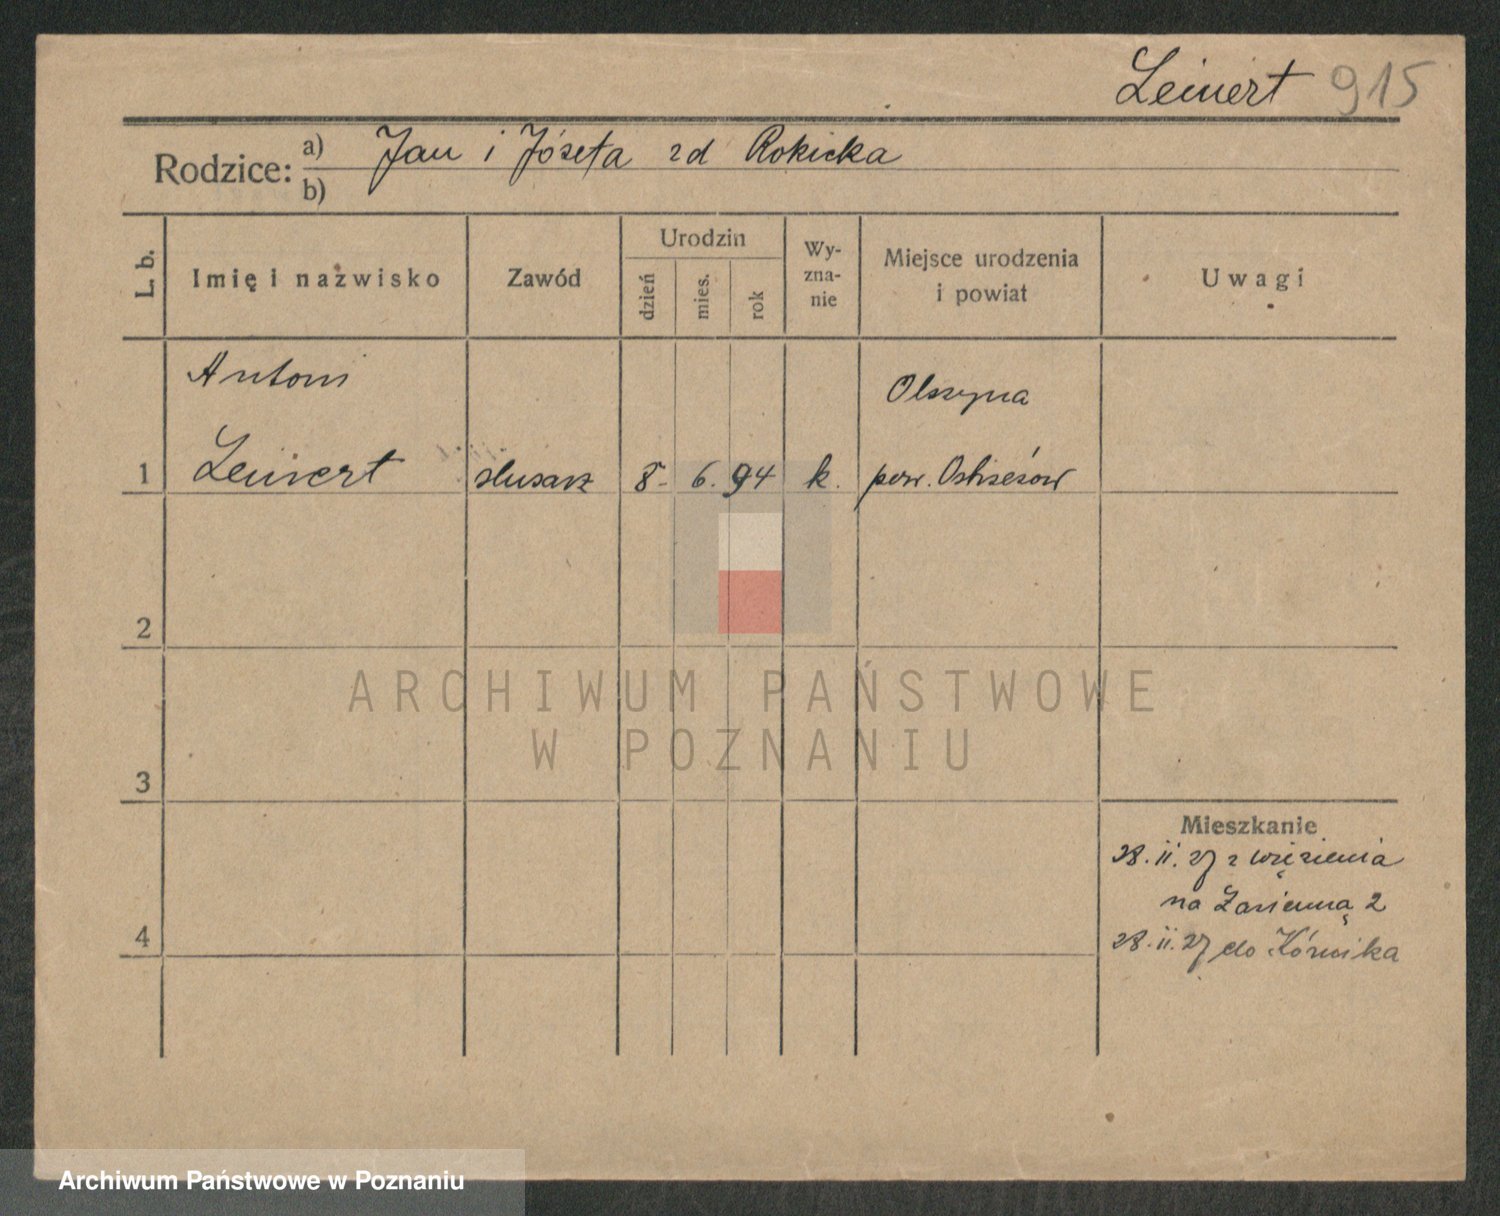 Leinert 915
Rodzice: a) Jan i Józefa zd Rokicka
b)
L. b.
Imię i nazwisko
Zawód
Urodzin
dzień
mies.
rok
Wy-
zna-
nie
Miejsce urodzenia
i powiat
Uwagi
Antoni
Olszyna
1 Leinert ślusarz 8. 6. 94 k. pow. Ostrzeszów
2
ARCHIWUM PAŃSTWOWE
W POZNANIU
3
Mieszkanie
28. II. 27 z więzienia
na 2
4
28. II. 27 do Kórnika
Archiwum Państwowe w Poznaniu